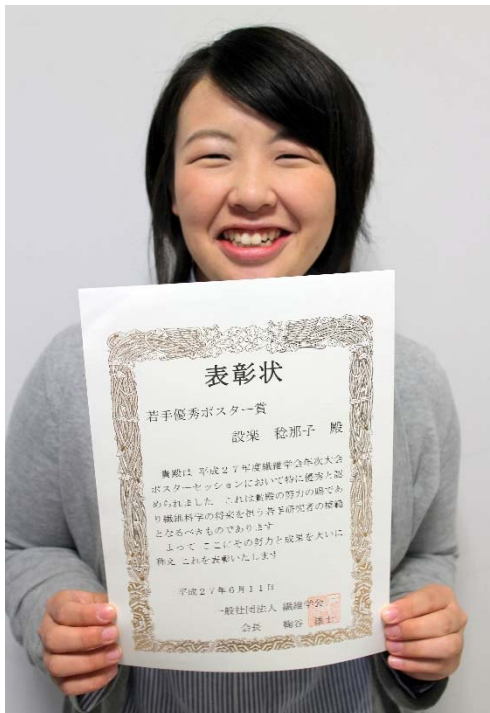 表彰状
若手優秀ポスター賞
設楽 稔那子 殿
貴殿は 平成27年度繊維学会年次大会
ポスターセッションにおいて特に優秀と認
められました これは勤勉の努力の賜であ
り繊維科学の将来を担う若手研究者の模範
となるべきものであります
よって ここにその努力と成果を大いに
称え これを表彰いたします
平成27年6月11日
一般社団法人 繊維学会
会長 鞠谷 雄士